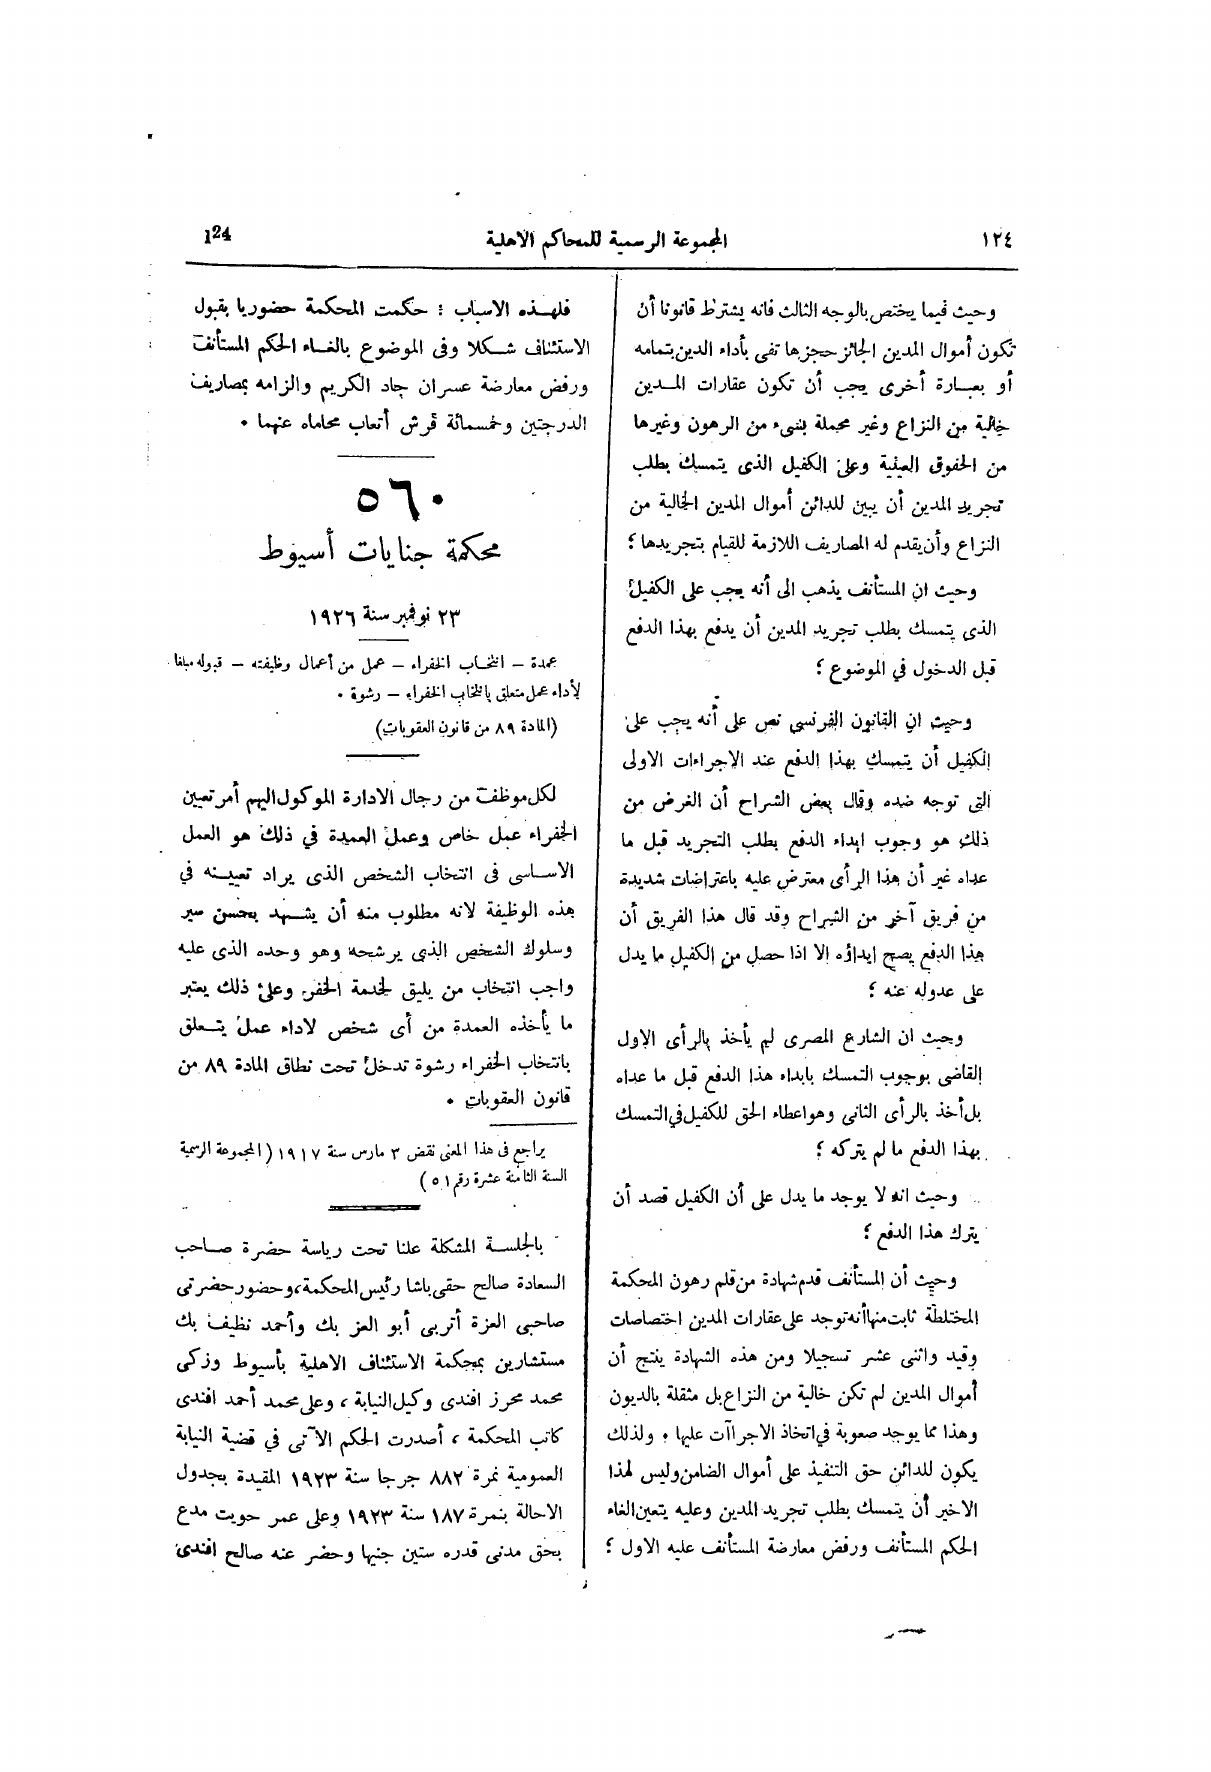 ١٢٤
المجموعة الرسمية للمحاكم الاهلية
124
وحيث فيما يختص بالوجه الثالث فانه يشترط قانونا أن
تكون أموال المدين الجائز حجزها تفى بأداء الدين بتمامه
أو بعبارة أخرى يجب أن تكون عقارات المدين
خالية من النزاع وغير محملة بشىء من الرهون وغيرها
من الحقوق العينية وعلى الكفيل الذى يتمسك بطلب
تجريد المدين أن يبين للدائن أموال المدين الخالية من
النزاع وأن يقدم له المصاريف اللازمة للقيام بتجريدها ؛
وحيث ان المستأنف يذهب الى أنه يجب على الكفيل
الذى يتمسك بطلب تجريد المدين أن يدفع بهذا الدفع
قبل الدخول في الموضوع ؛
وحيث ان القانون الفرنسي نص على أنه يجب على
الكفيل أن يتمسك بهذا الدفع عند الاجراءات الاولى
التى توجه ضده وقال بعض الشراح أن الغرض من
ذلك هو وجوب ابداء الدفع بطلب التجريد قبل ما
عداه غير أن هذا الرأى معترض عليه باعتراضات شديدة
من فريق آخر من الشراح وقد قال هذا الفريق أن
هذا الدفع يصح إبداؤه إلا اذا حصل من الكفيل ما يدل
على عدوله عنه ؛
وحيث ان الشارع المصرى لم يأخذ بالرأى الاول
القاضى بوجوب التمسك بابداء هذا الدفع قبل ما عداه
بل أخذ بالرأى الثانى وهو اعطاء الحق للكفيل في التمسك
بهذا الدفع ما لم يتركه ؛
وحيث انه لا يوجد ما يدل على أن الكفيل قصد أن
يترك هذا الدفع ؛
وحيث أن المستأنف قدم شهادة من قلم رهون المحكمة
المختلطة ثابت منها أنه توجد على عقارات المدين اختصاصات
وقيد واثنى عشر تسجيلا ومن هذه الشهادة ينتج أن
أموال المدين لم تكن خالية من النزاع بل مثقلة بالديون
وهذا مما يوجد صعوبة في اتخاذ الاجراآت عليها . ولذلك
يكون للدائن حق التنفيذ على أموال الضامن وليس لهذا
الاخير أن يتمسك بطلب تجريد المدين وعليه يتعين الغاء
الحكم المستأنف ورفض معارضة المستأنف عليه الاول ؛
فلهذه الاسباب : حكمت المحكمة حضوريا بقبول
الاستئناف شكلا وفى الموضوع بالغاء الحكم المستأنف
ورفض معارضة عسران جاد الكريم والزامه بمصاريف
الدرجتين وخمسمائة قرش أتعاب محاماه عنهما .
٥٦٠
محكمة جنايات أسيوط
٢٣ نوفمبر سنة ١٩٢٦
عمدة – انتخاب الخفراء – عمل من أعمال وظيفته – قبوله مبلغا
لأداء عمل متعلق بانتخاب الخفراء – رشوة .
(المادة ٨٩ من قانون العقوبات)
لكل موظف من رجال الادارة الموكول اليهم أمر تعيين
الخفراء عمل خاص وعمل العمدة في ذلك هو العمل
الاساسى فى انتخاب الشخص الذى يراد تعيينه في
هذه الوظيفة لانه مطلوب منه أن يشهد بحسن سير
وسلوك الشخص الذى يرشحه وهو وحده الذى عليه
واجب انتخاب من يليق لخدمة الخفر وعلى ذلك يعتبر
ما يأخذه العمدة من أى شخص لاداء عمل يتعلق
بانتخاب الخفراء رشوة تدخل تحت نطاق المادة ٨٩ من
قانون العقوبات .
يراجع فى هذا المعنى نقض ٣ مارس سنة ١٩١٧ (المجموعة الرسمية
السنة الثامنة عشرة رقم ٥١)
بالجلسة المشكلة علنا تحت رياسة حضرة صاحب
السعادة صالح حقى باشا رئيس المحكمة، وحضور حضرتى
صاحبى العزة أتربى أبو العز بك وأحمد نظيف بك
مستشارين بمحكمة الاستئناف الاهلية بأسيوط وزكى
محمد محرز افندى وكيل النيابة ، وعلى محمد أحمد افندى
كاتب المحكمة ، أصدرت الحكم الآتى في قضية النيابة
العمومية نمرة ٨٨٢ جرجا سنة ١٩٢٣ المقيدة بجدول
الاحالة بنمرة ١٨٧ سنة ١٩٢٣ وعلى عمر حويت مدع
بحق مدنى قدره ستين جنيها وحضر عنه صالح افندى